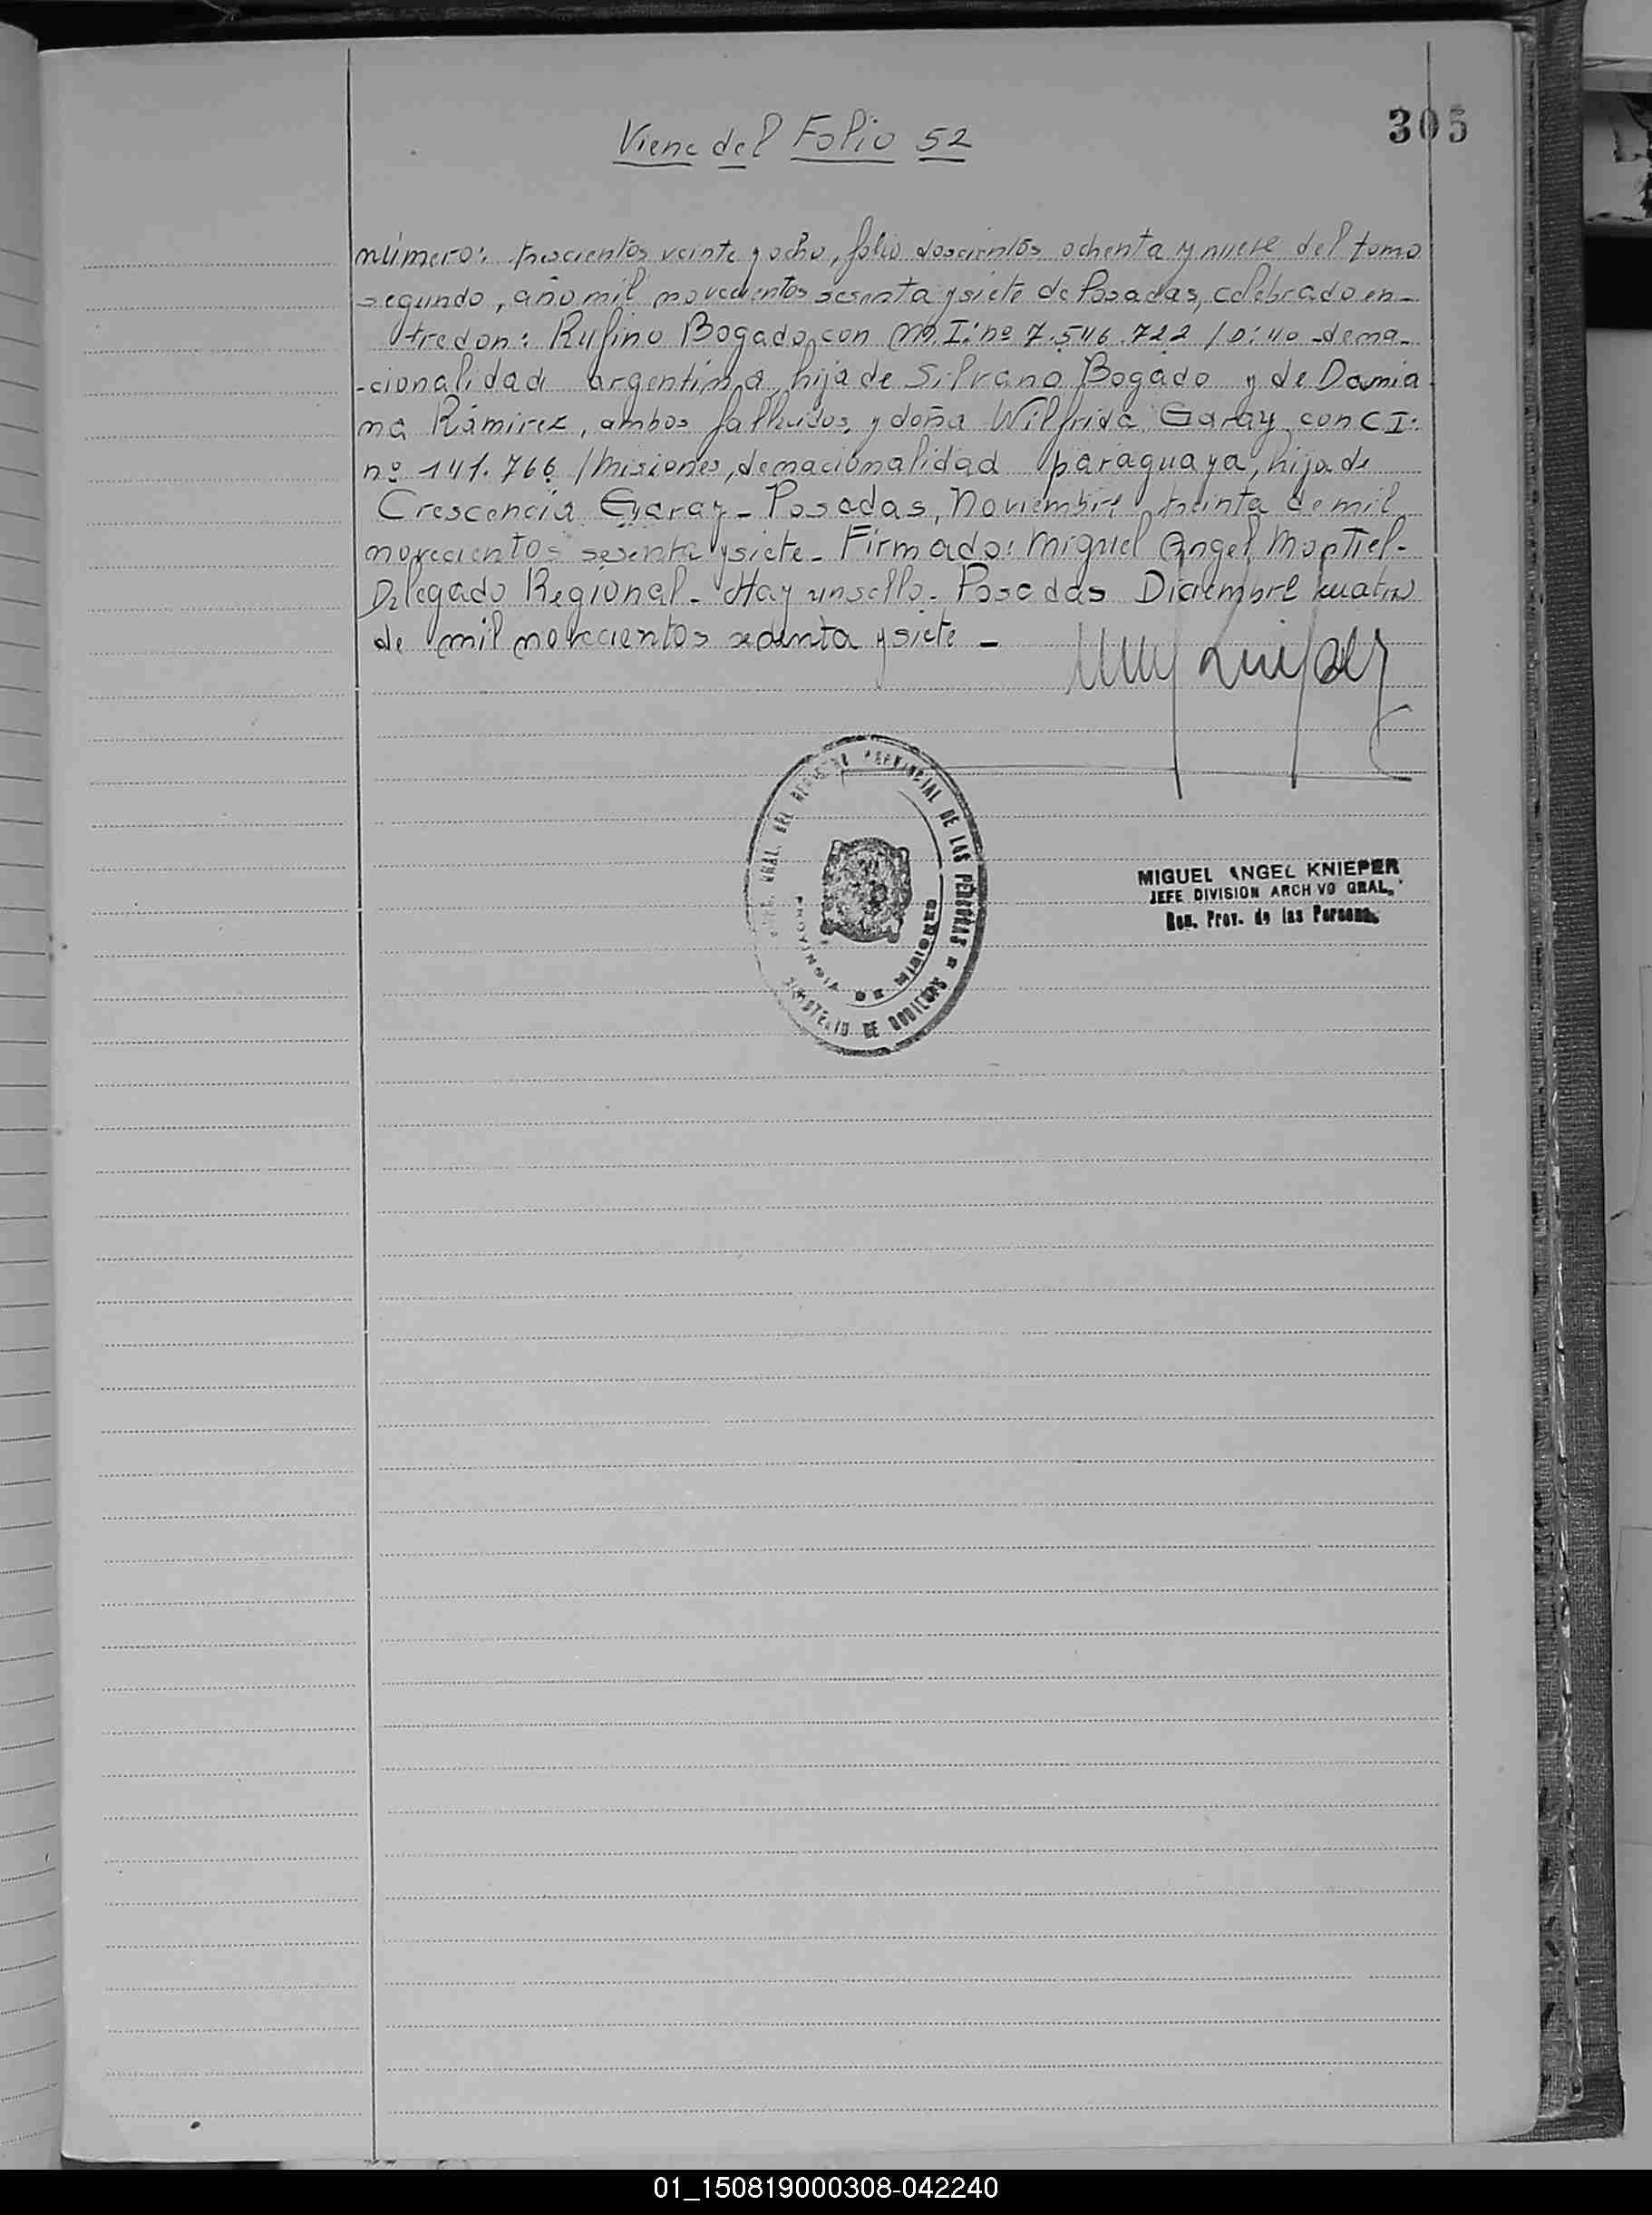 305
Viene del Folio 52
número: trescientos veinte y ocho, folio doscientos ochenta y nueve del tomo
segundo, año mil novecientos sesenta y siete de Posadas, celebrado en-
tre don: Rufino Bogado, con M.I: nº 7.546.722 / D: 40 - de na-
-cionalidad argentina, hijo de Silvano Bogado y de Damia
na Rámirez, ambos fallecidos, y doña Wilfrida Garay, con C I:
nº 141.766 / Misiones, de nacionalidad paraguaya, hija de
Crescencia Garay - Posadas, Noviembre treinta de mil
novecientos sesenta y siete - Firmado: Miguel Angel Montiel-
Delegado Regional - Hay un sello - Posadas Diciembre cuatro
de mil novecientos sesenta y siete -
GRAL. DEL REGISTRO PROVINCIAL DE LAS PERSONAS
PROVINCIA DE MISIONES
MINISTERIO DE GOBIERNO
MIGUEL ANGEL KNIEPER
JEFE DIVISION ARCHIVO GRAL.
Reg. Prov. de las Personas
01_150819000308-042240